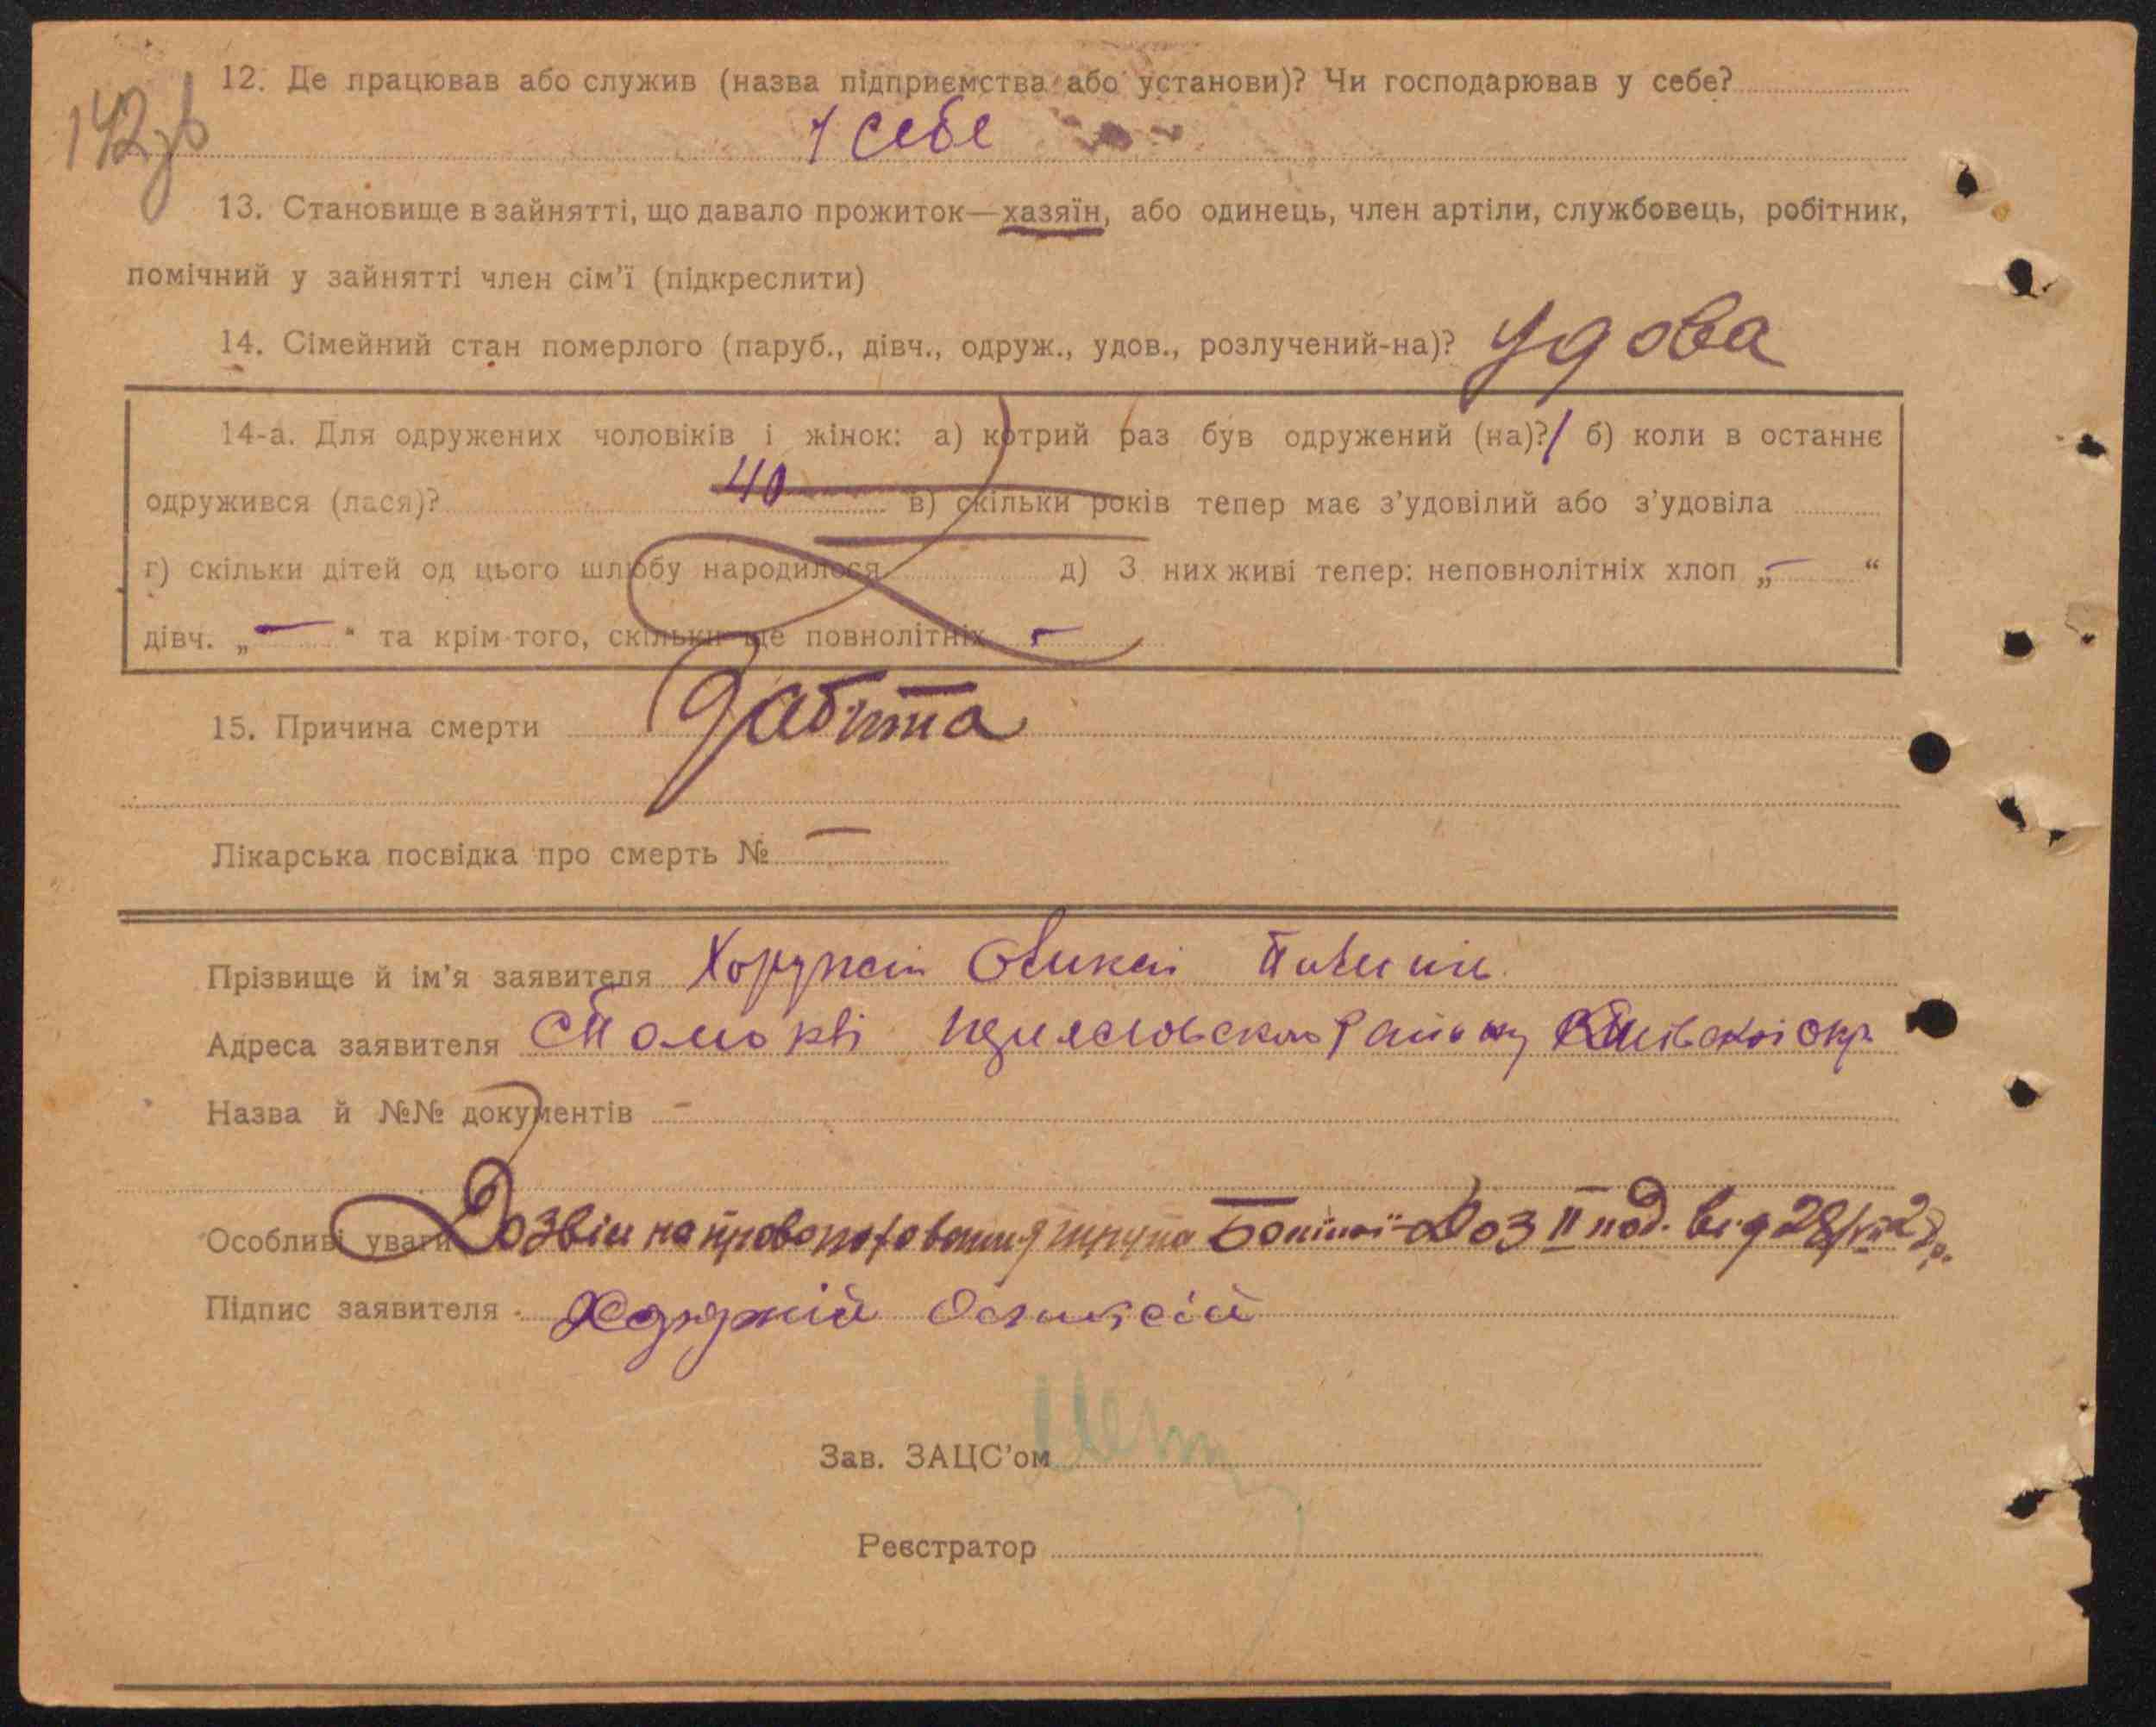 142 зв
12. Де працював або служив (назва підприємства або установи)? Чи господарював у себе?
У себе
13. Становище в зайнятті, що давало прожиток—хазяїн, або одинець, член артіли, службовець, робітник,
помічний у зайнятті член сім'ї (підкреслити)
14. Сімейний стан померлого (паруб., дівч., одруж., удов., розлучений-на)? Удова
14-а. Для одружених чоловіків і жінок: а) котрий раз був одружений (на)? 1 б) коли в останнє
одружився (лася)? 40 в) скільки років тепер має з'удовілий або з'удовіла
г) скільки дітей од цього шлюбу народилося д) З них живі тепер: неповнолітніх хлоп „ — “
дівч. „ — “ та крім того, скільки ще повнолітніх —
15. Причина смерти Забита
Лікарська посвідка про смерть № —
Прізвище й ім'я заявителя Хоружій
Адреса заявителя району Київської окр.
Назва й №№ документів —
Особливі уваги Дозвіл на право поховання трупа від 28/VII 28р.
Підпис заявителя Хоружій Олексій
Зав. ЗАЦС'ом
Реєстратор